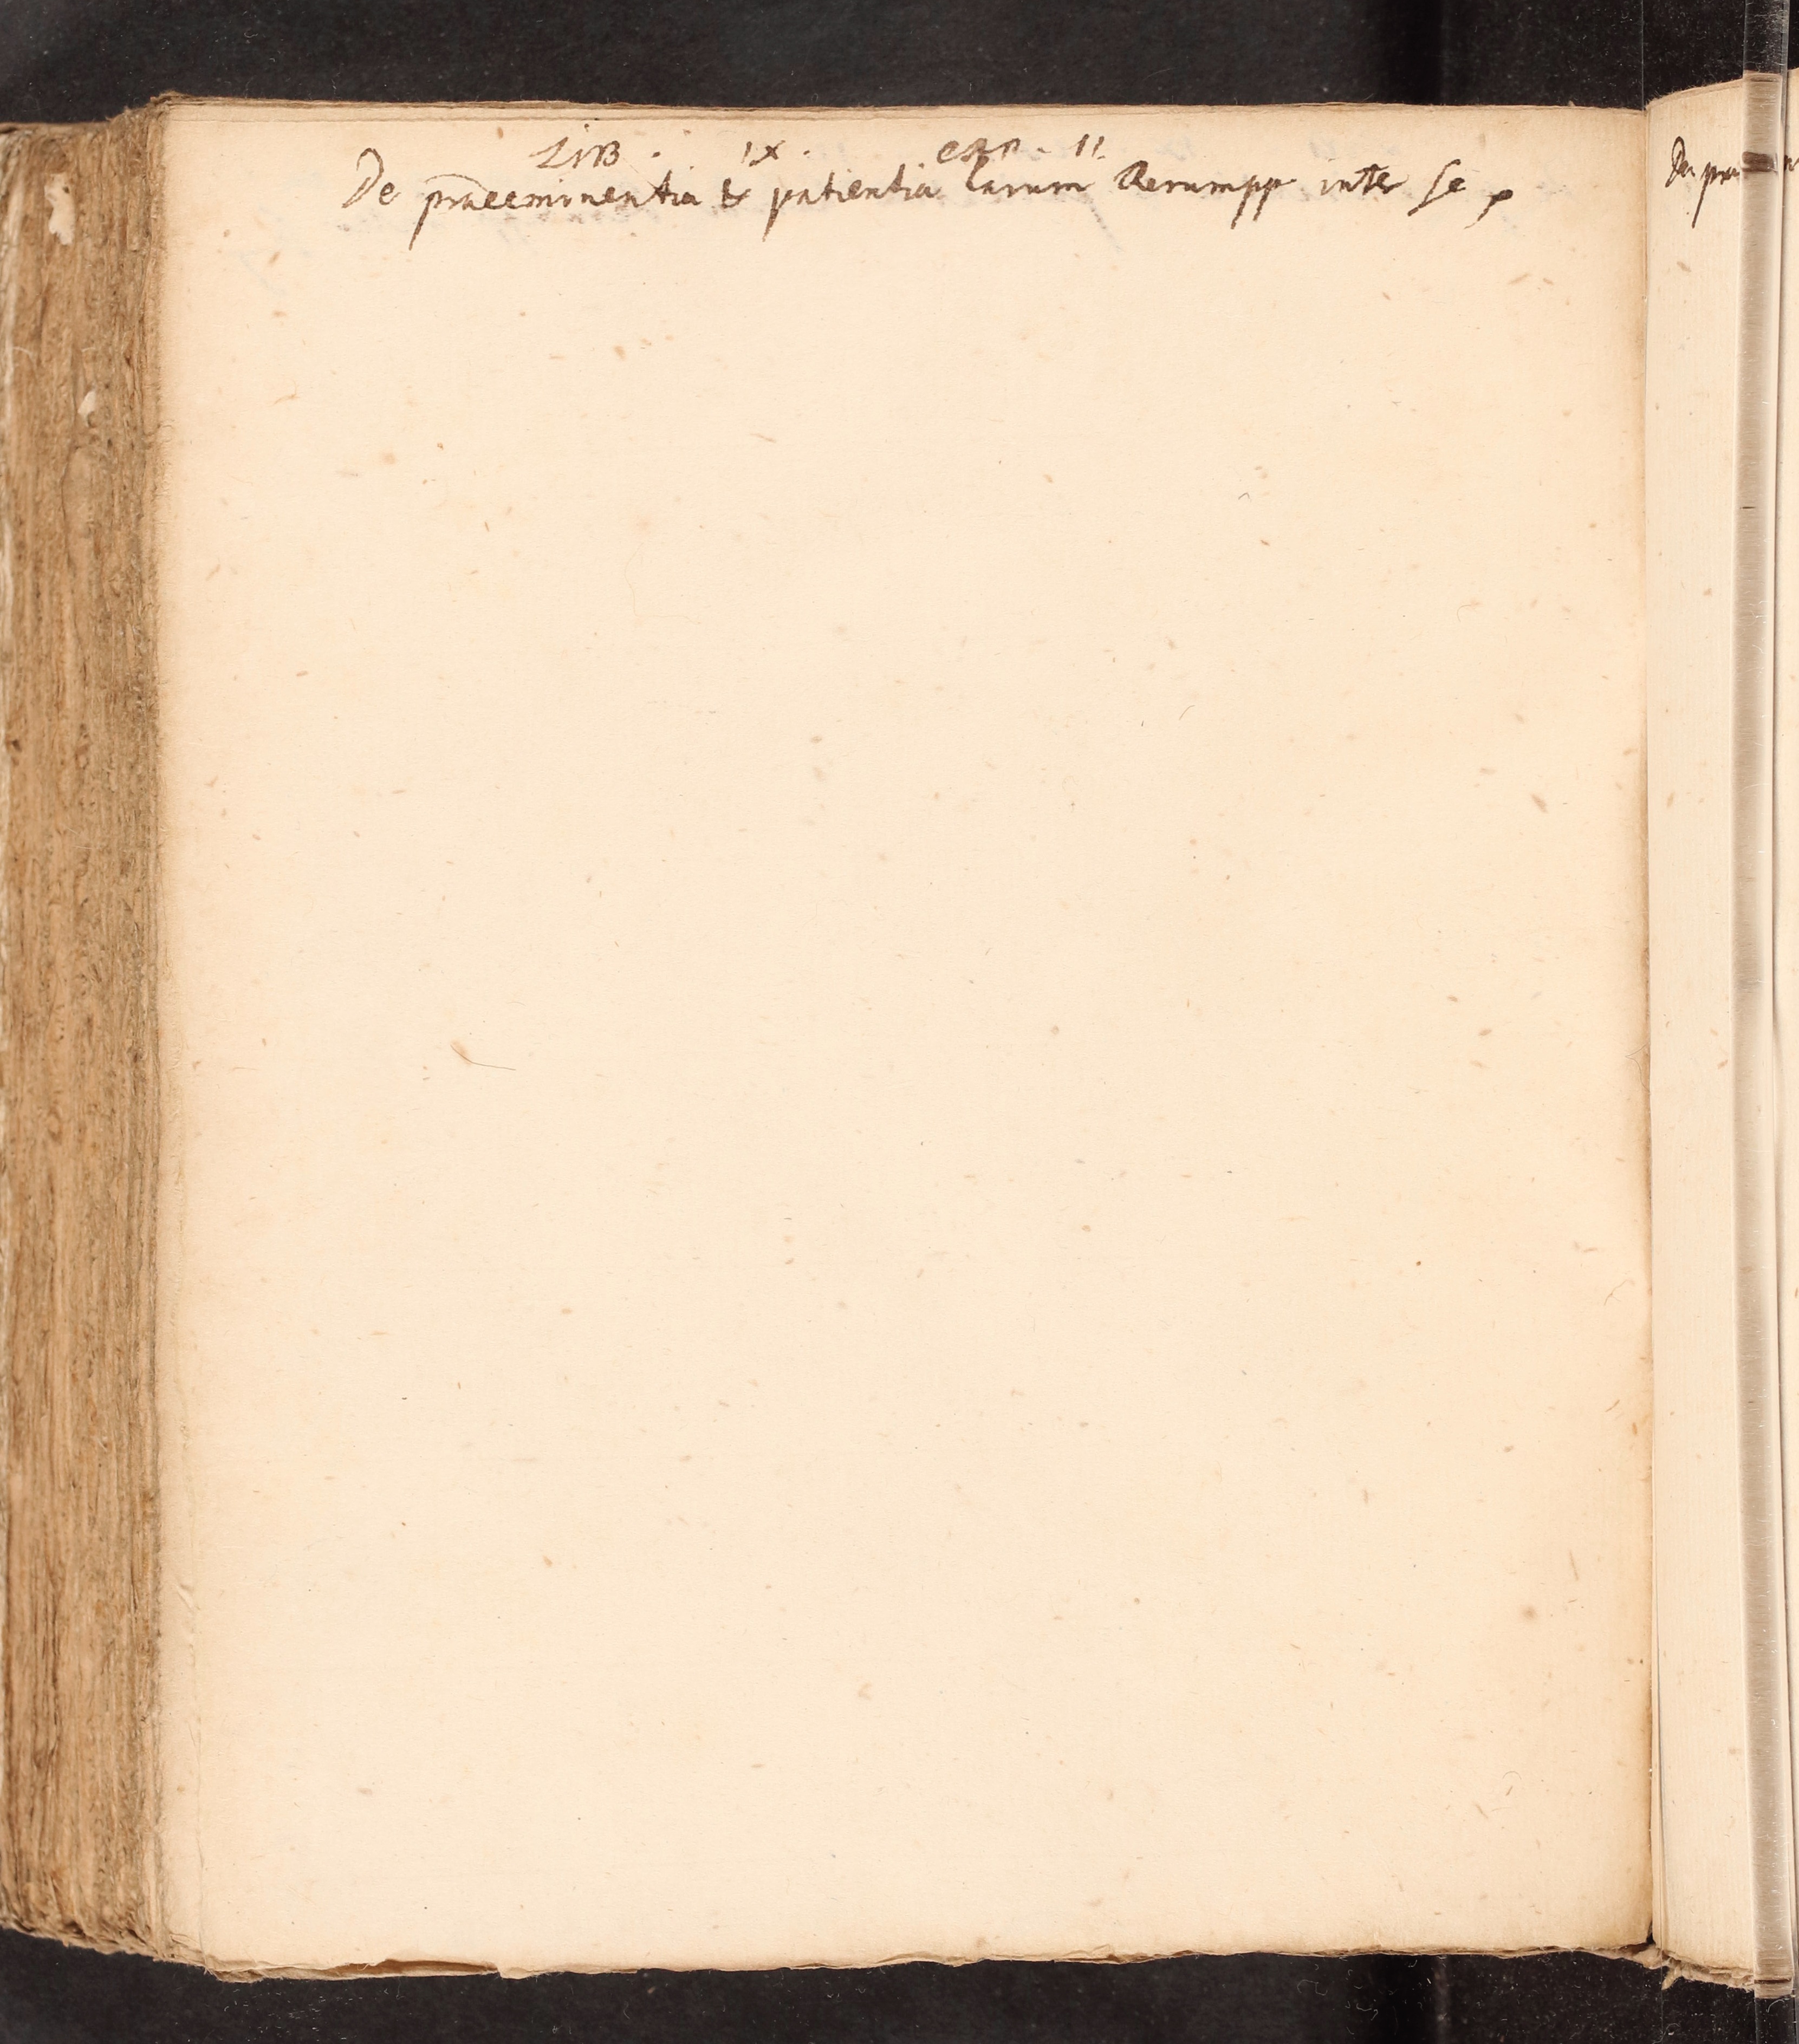 LIB. IX. CAP. II.
De praeeminentia & patientia earum Rerumpp inter se,
De prae